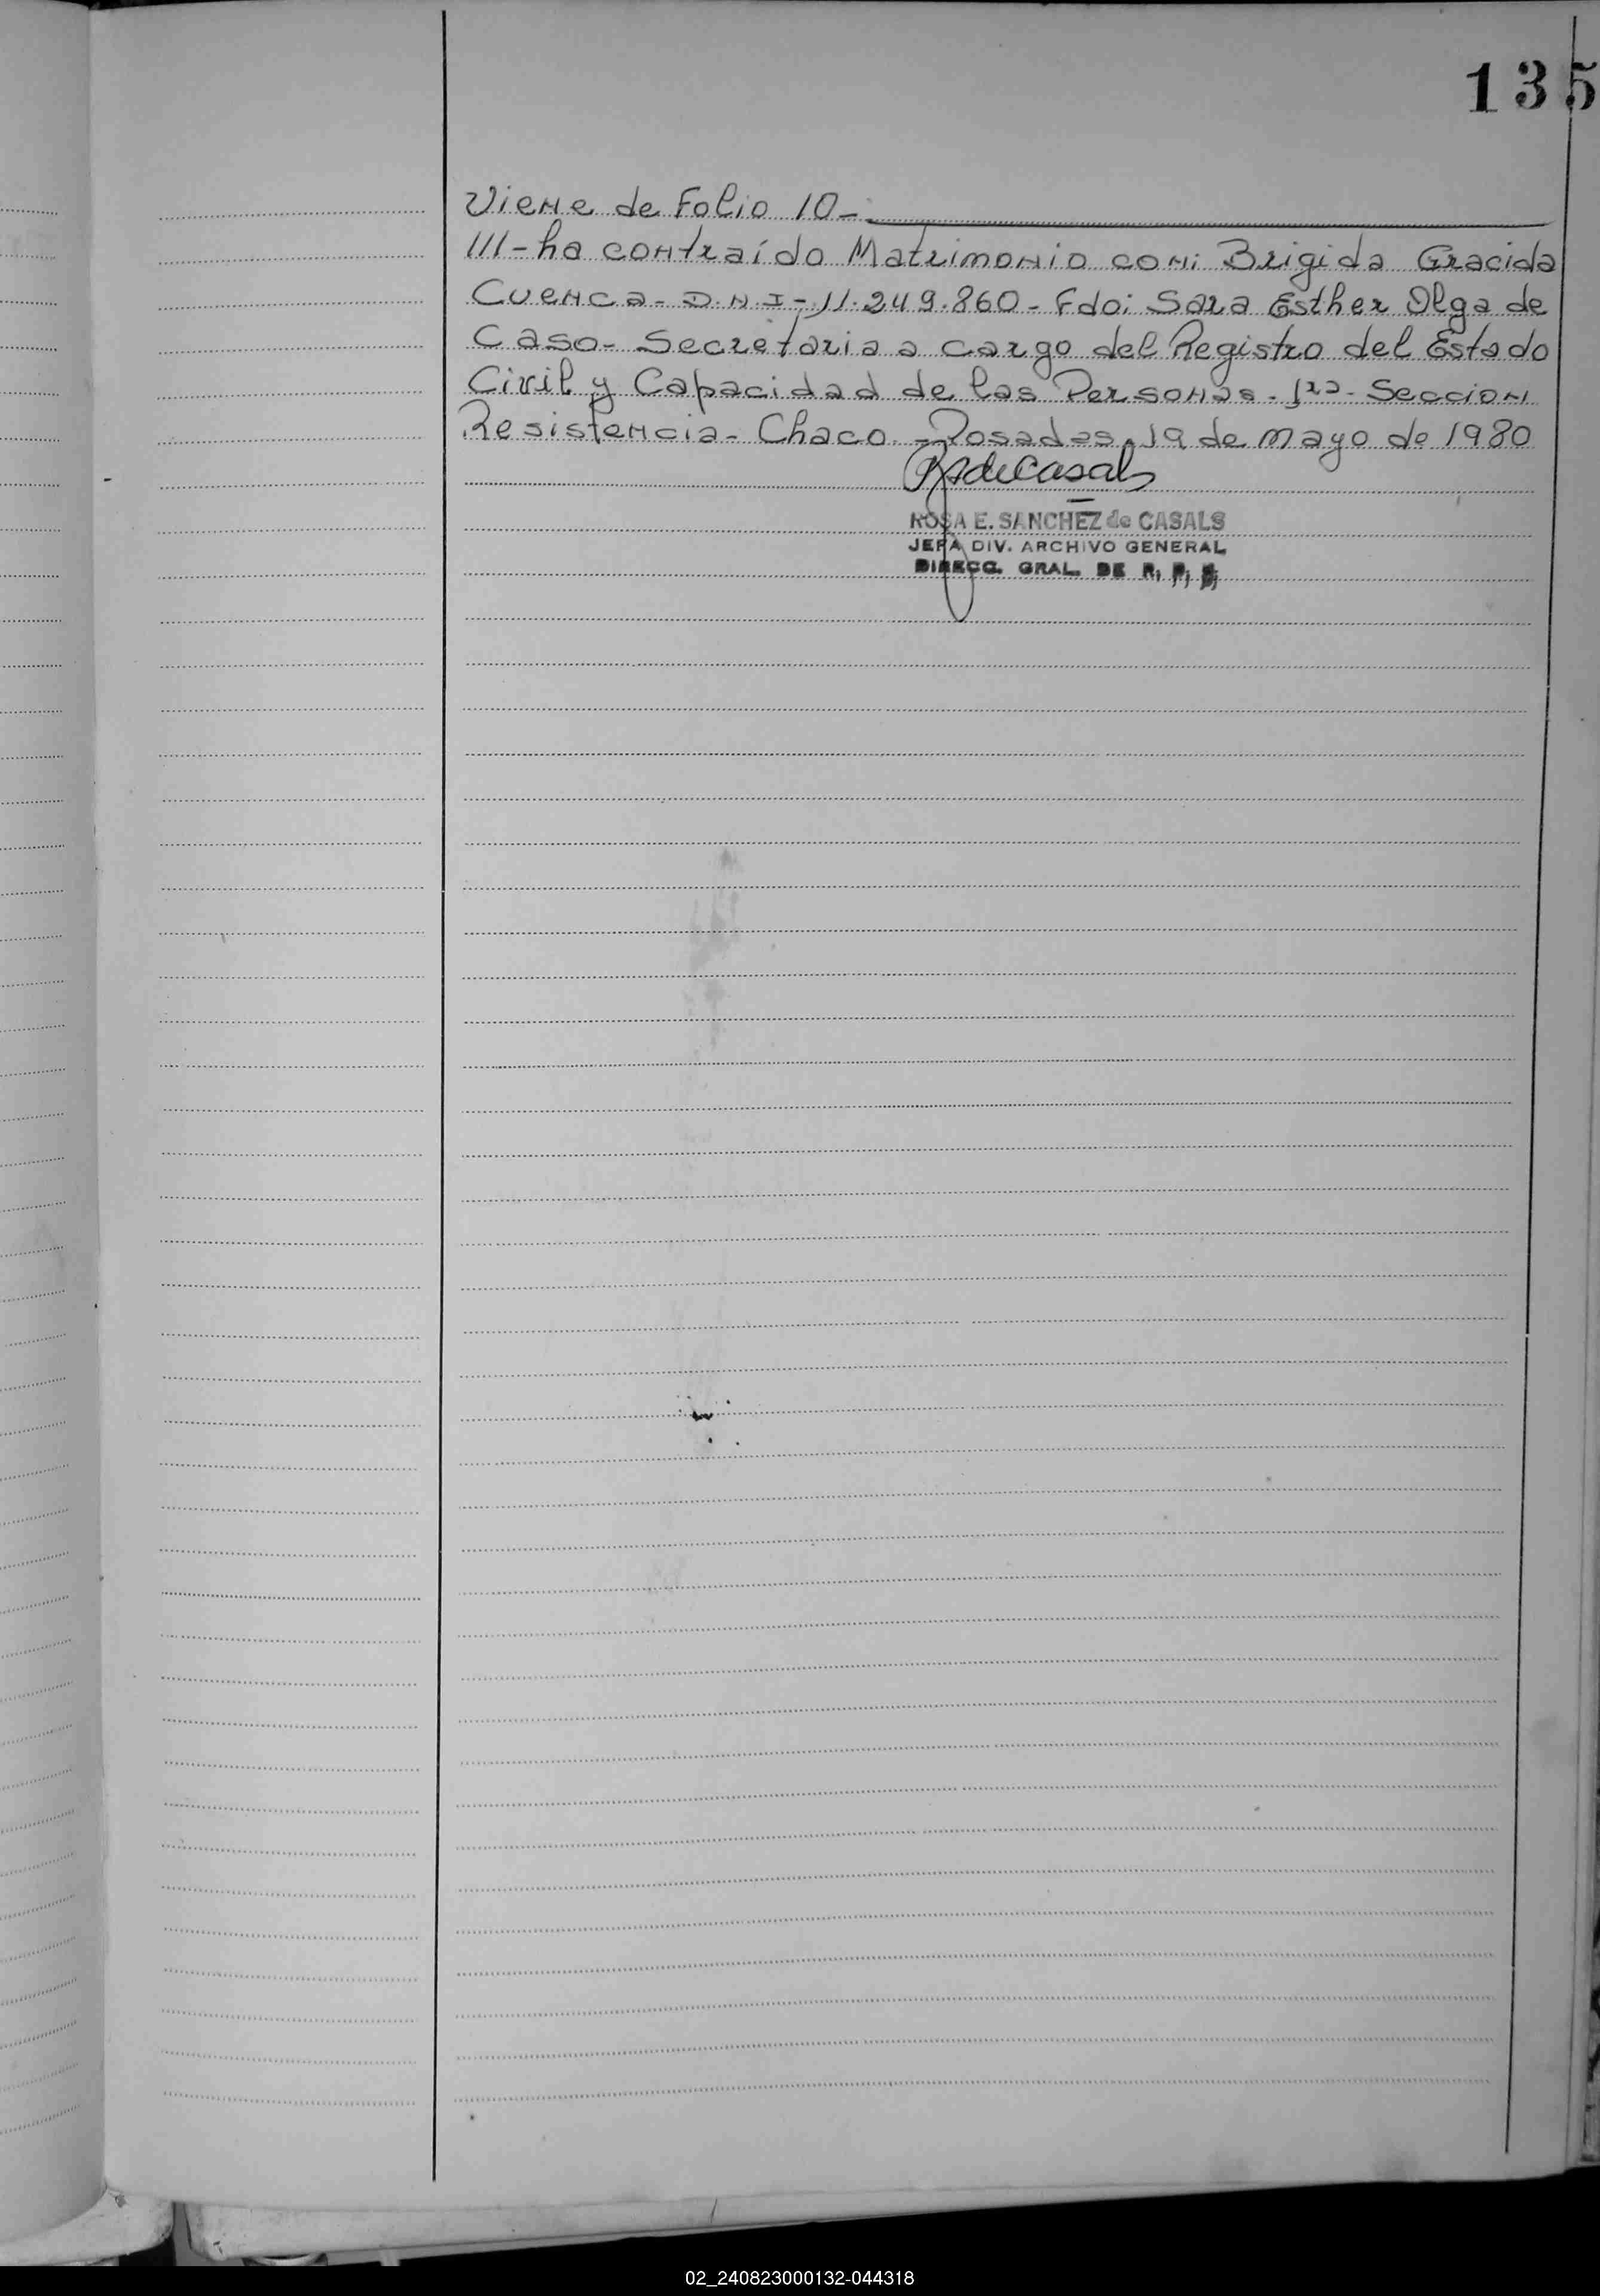 135
Viene de Folio 10-
III-ha contraído Matrimonio con: Brigida Gracida
Cuenca-D.N.I-11.249.860-Fdo: Sara Esther Olga de
Caso-Secretaria a cargo del Registro del Estado
Civil y Capacidad de las Personas-1ra-Seccion
Resistencia-Chaco.-Posadas, 19 de mayo de 1980
RSdeCasals
ROSA E. SANCHEZ de CASALS
JEFA DIV. ARCHIVO GENERAL
DIRECC. GRAL. DE R. P.
02_240823000132-044318